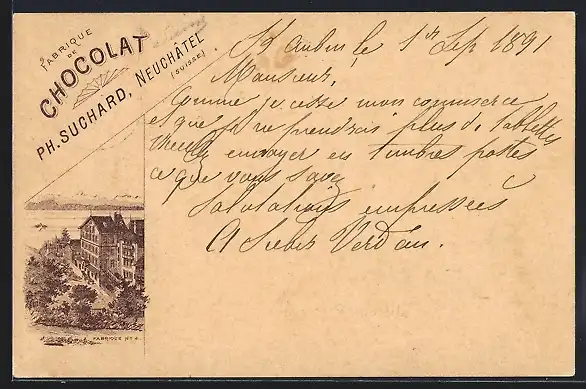 FABRIQUE
DE
CHOCOLAT
PH. SUCHARD, NEUCHÂTEL
(SUISSE)
St Aubin le 1er Sep 1891
Monsieur,
Comme je cesse mon commerce
et que je ne prendrai plus de tablettes
veuillez envoyer en timbres postes
ce que vous savez
Salutations empressées
A Verdan.
FABRIQUE No 4.